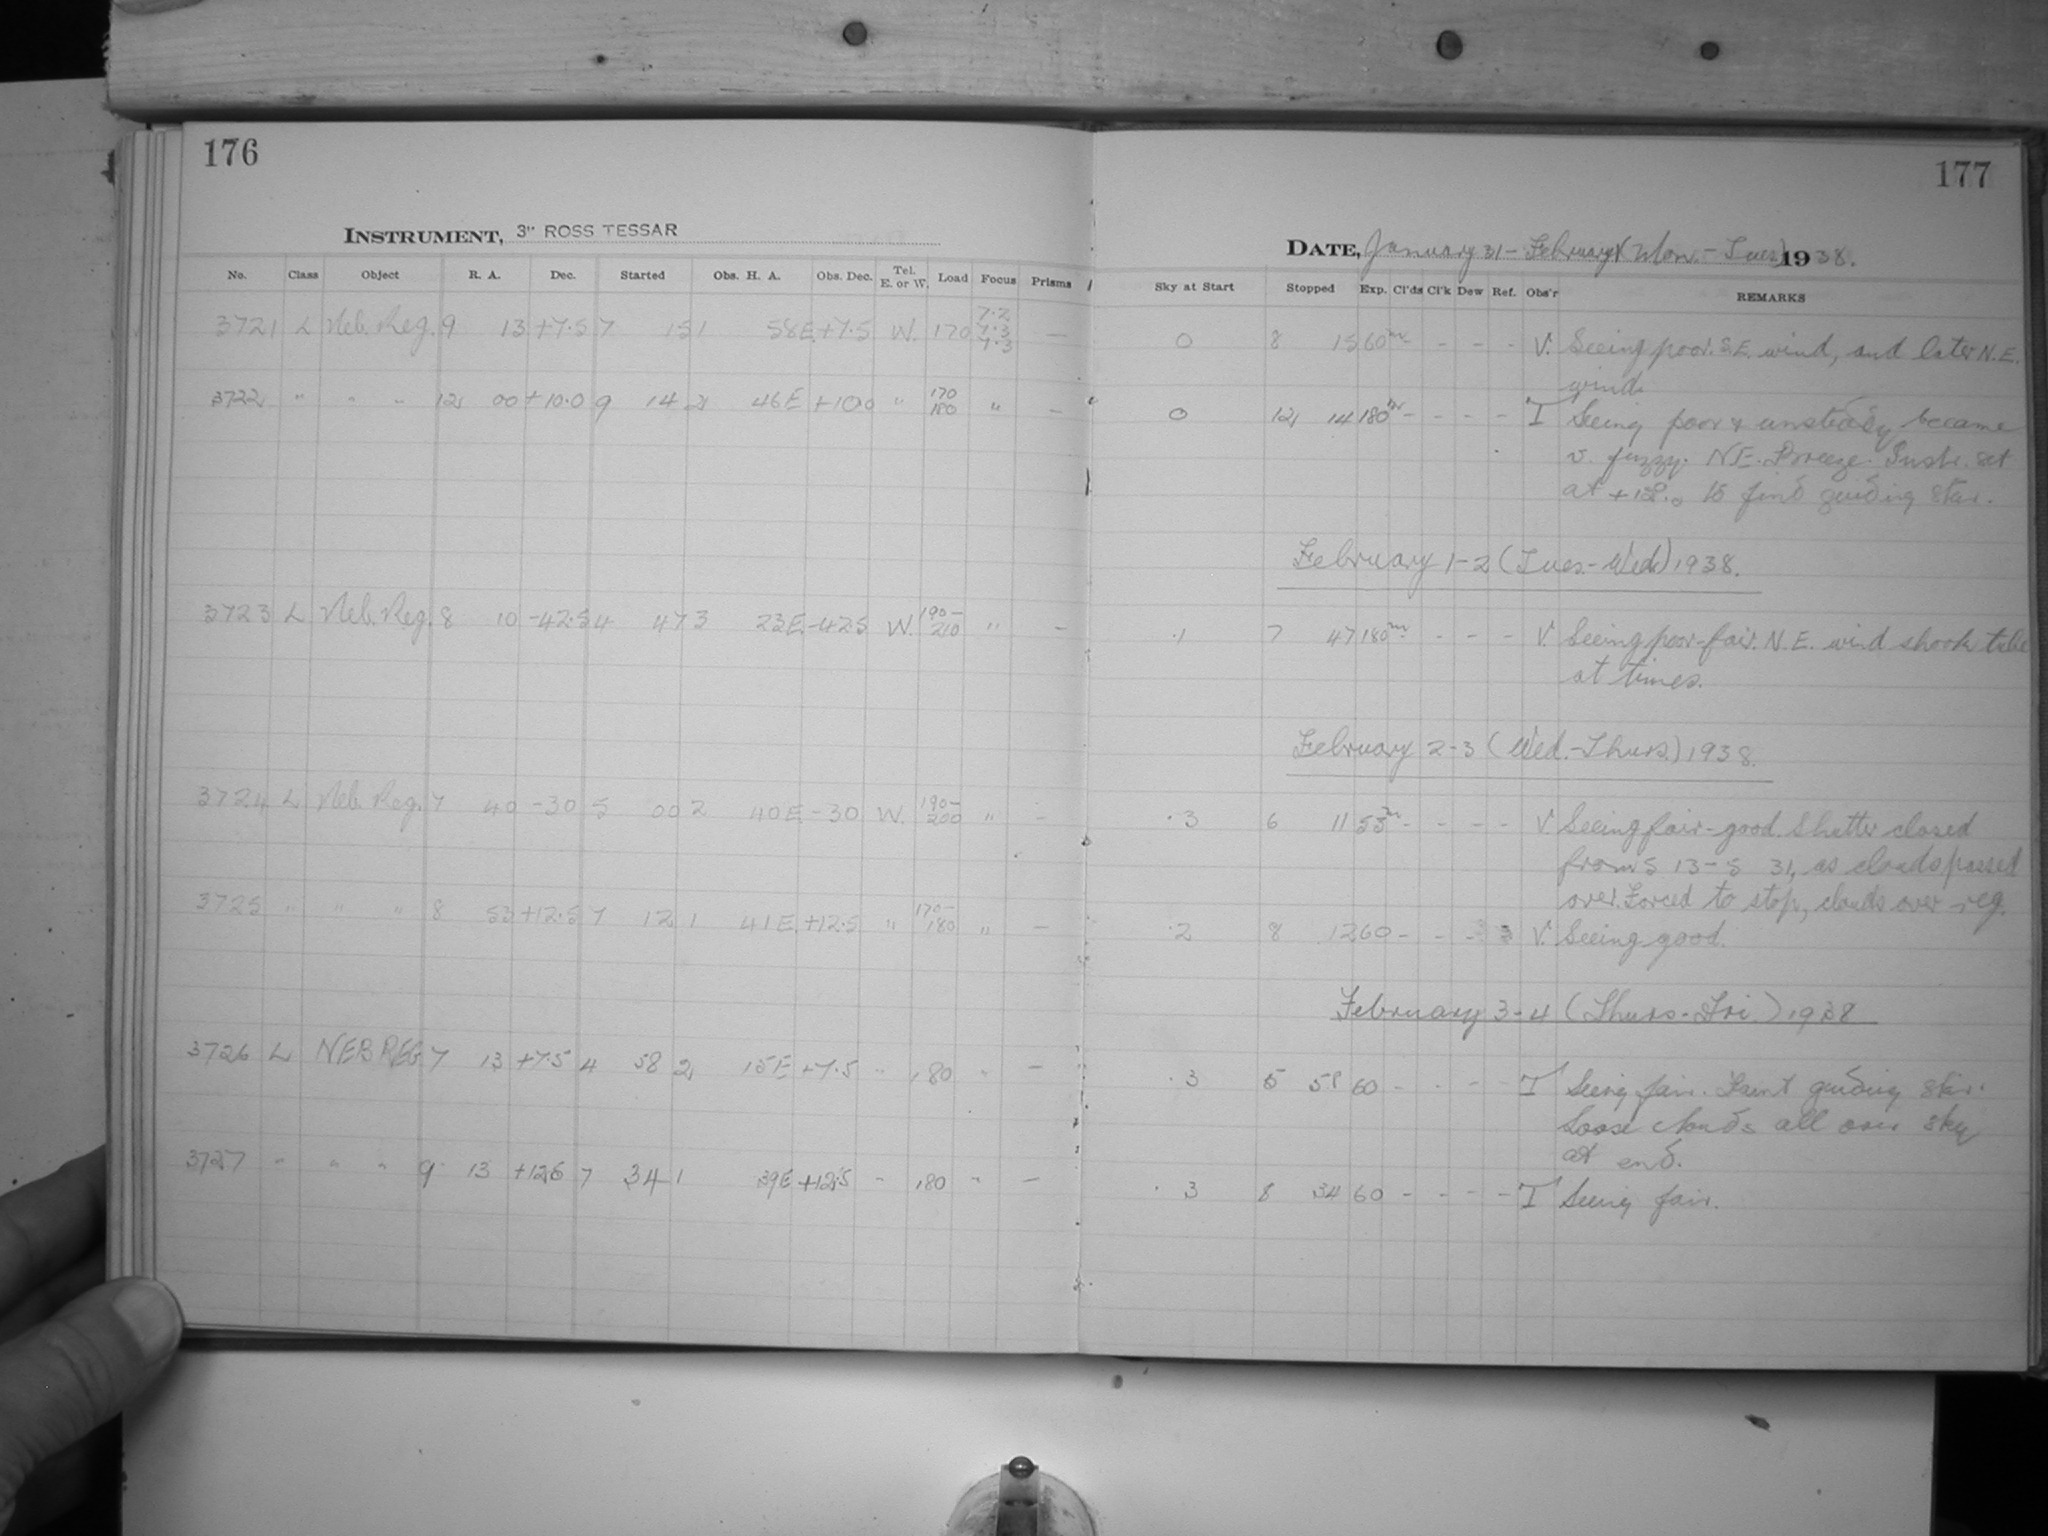 176
INSTRUMENT, 3" ROSS TESSAR
No. Class Object R. A. Dec. Started Obs. H. A. Obs. Dec. Tel. E. or W. Load Focus Prisms
3721 L Neb. Reg. 9 13 +7.5 7 15 1 58E +7.5 W. 170 7.2 7.3 7.3 —
3722 " " " 12 00 +10.0 9 14 2 46E +10.0 " 170 180 " —
3723 L Neb. Reg. 8 10 -42.5 4 47 3 23E -42.5 W. 190- 210 " —
3724 L Neb. Reg. 7 40 -30 5 00 2 40E -30 W. 190- 200 " —
3725 " " " 8 53 +12.5 7 12 1 41E +12.5 " 170- 180 " —
3726 L NEB REG. 7 13 +7.5 4 58 2 15E +7.5 " 180 " —
3727 " " " 9 13 +12.5 7 34 1 39E +12.5 " 180 " —
177
DATE, January 31 - February 1 (Mon. - Tues.) 1938.
Sky at Start Stopped Exp. Cl'ds Cl'k Dew Ref. Obs'r REMARKS
0 8 15 60m - - - - V. Seeing poor. S.E. wind, and later N.E.
wind.
0 12 14 180m - - - - T Seeing poor & unsteady became
v. fuzzy. N.E. Breeze. Instr. set
at to find guiding star.
February 1-2 (Tues.-Wed.) 1938.
.1 7 47 180m - - - V. Seeing poor-fair. N.E. wind shook tube
at times.
February 2-3 (Wed.-Thurs.) 1938.
.3 6 11 53m - - - - V. Seeing fair-good. Shutter closed
from 5 13 - 5 31, as clouds passed
over. Forced to stop, clouds over reg.
.2 8 12 60 - - - V. Seeing good.
February 3-4 (Thurs-Fri.) 1938
.3 5 58 60 - - - - T Seeing fair. Faint guiding star.
Loose clouds all over sky
at end.
.3 8 34 60 - - - - T Seeing fair.